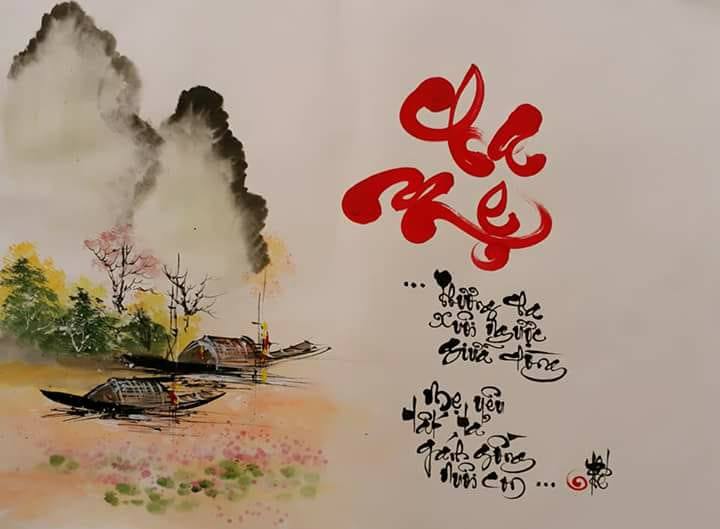 Cha
Mẹ
... Thương cha
xuôi ngược
giữa dòng
Mẹ yêu
tất tả
gánh gồng
nuôi con ...